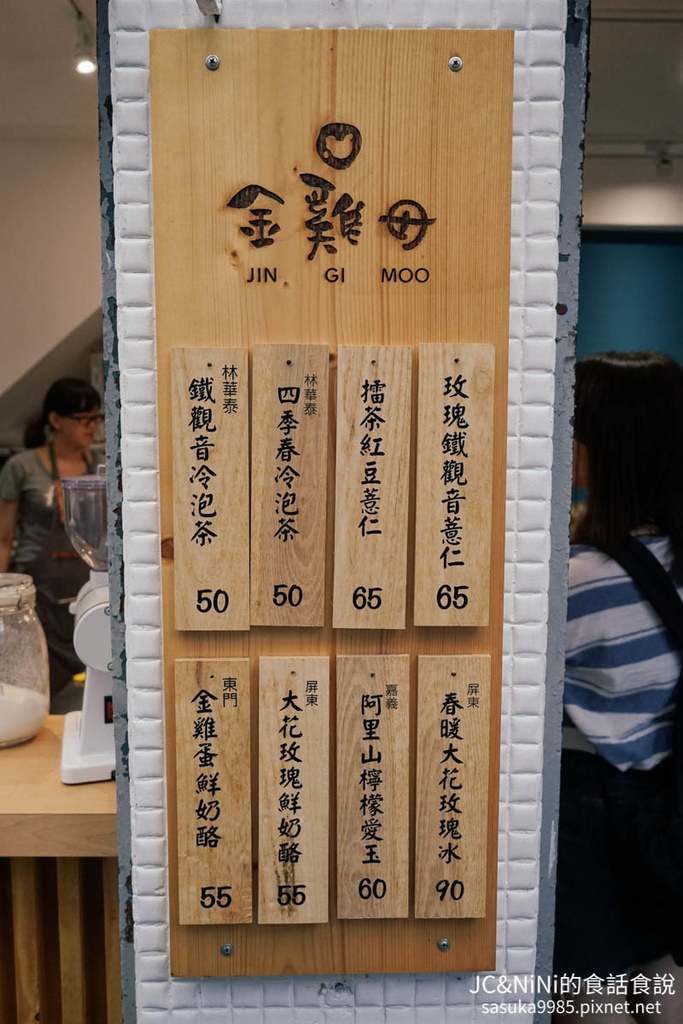 金雞母
JIN GI MOO
玫瑰鐵觀音薏仁
65
擂茶紅豆薏仁
65
林華泰
四季春冷泡茶
50
林華泰
鐵觀音冷泡茶
50
屏東
春暖大花玫瑰冰
90
嘉義
阿里山檸檬愛玉
60
屏東
大花玫瑰鮮奶酪
55
東門
金雞蛋鮮奶酪
55
JC&NiNi的食話食說
sasuka9985.pixnet.net